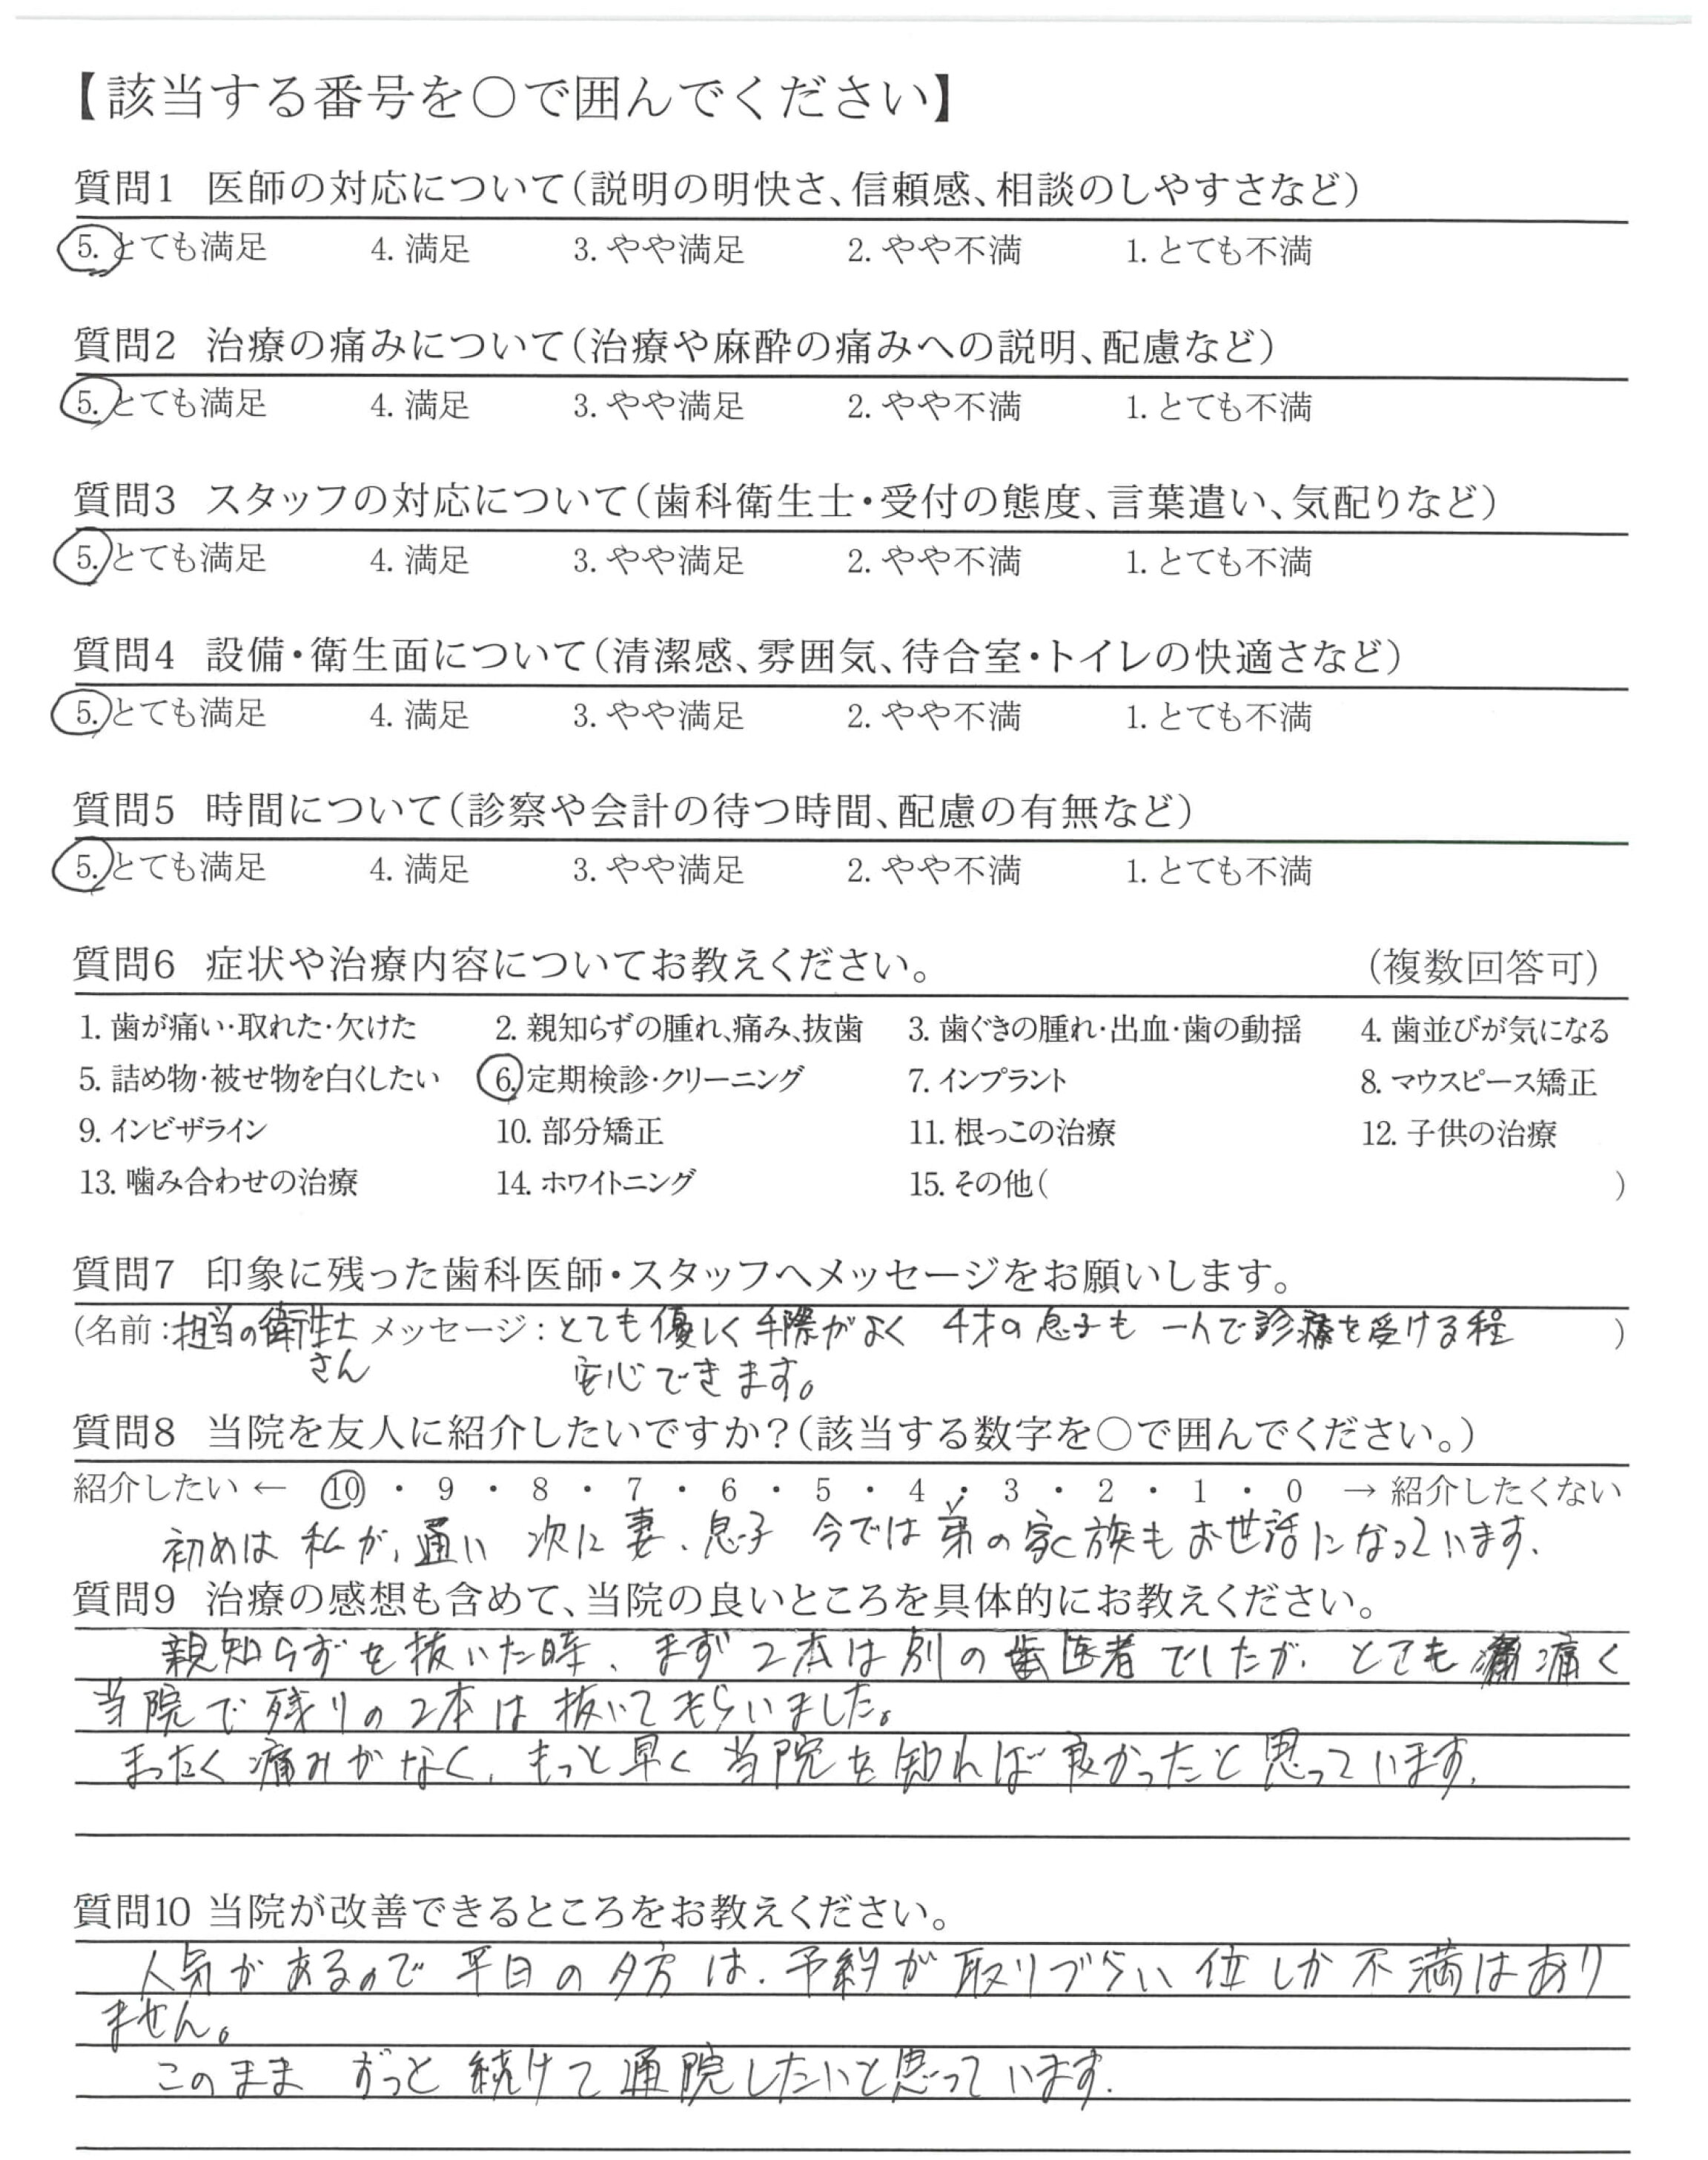 【該当する番号を○で囲んでください】
質問1 医師の対応について(説明の明快さ、信頼感、相談のしやすさなど)
5. とても満足 4. 満足 3. やや満足 2. やや不満 1. とても不満
質問2 治療の痛みについて(治療や麻酔の痛みへの説明、配慮など)
5. とても満足 4. 満足 3. やや満足 2. やや不満 1. とても不満
質問3 スタッフの対応について(歯科衛生士・受付の態度、言葉遣い、気配りなど)
5. とても満足 4. 満足 3. やや満足 2. やや不満 1. とても不満
質問4 設備・衛生面について(清潔感、雰囲気、待合室・トイレの快適さなど)
5. とても満足 4. 満足 3. やや満足 2. やや不満 1. とても不満
質問5 時間について(診察や会計の待つ時間、配慮の有無など)
5. とても満足 4. 満足 3. やや満足 2. やや不満 1. とても不満
質問6 症状や治療内容についてお教えください。 (複数回答可)
1. 歯が痛い・取れた・欠けた 2. 親知らずの腫れ、痛み、抜歯 3. 歯ぐきの腫れ・出血・歯の動揺 4. 歯並びが気になる
5. 詰め物・被せ物を白くしたい 6. 定期検診・クリーニング 7. インプラント 8. マウスピース矯正
9. インビザライン 10. 部分矯正 11. 根っこの治療 12. 子供の治療
13. 噛み合わせの治療 14. ホワイトニング 15. その他( )
質問7 印象に残った歯科医師・スタッフへメッセージをお願いします。
(名前:担当の衛生士 メッセージ:とても優しく手際がよく 4才の息子も 一人で診療を受ける程 )
さん 安心できます。
質問8 当院を友人に紹介したいですか?(該当する数字を○で囲んでください。)
紹介したい ← 10 ・ 9 ・ 8 ・ 7 ・ 6 ・ 5 ・ 4 ・ 3 ・ 2 ・ 1 ・ 0 → 紹介したくない
初めは 私が、通い 次に 妻、息子 今では 弟の家族もお世話になっています.
質問9 治療の感想も含めて、当院の良いところを具体的にお教えください。
親知らずを抜いた時、まず2本は別の歯医者でしたが、とても痛く
当院で残りの2本は抜いてもらいました。
まったく痛みがなく、もっと早く当院を知れば良かったと思っています.
質問10 当院が改善できるところをお教えください。
人気があるので 平日の夕方は、予約が取りづらい位しか不満はあり
ません。
このまま ずっと続けて通院したいと思っています.